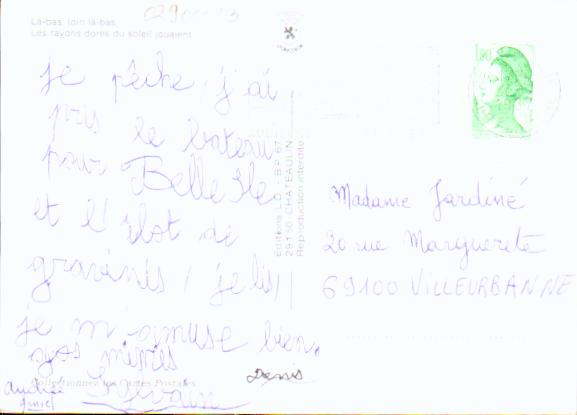 Là-bas, loin là-bas,
Les rayons dorés du soleil jouaient
je pêche, j'ai
pris le bateau
pour Belle Ile
et l'îlot de
gravinis, je lis,
je m'amuse bien.
gros mimis
Sylvain
Denis
Collectionnez les Cartes Postales
Editions LD - BP 67
29150 CHATEAULIN
Reproduction interdite
1,80
Madame Jardiné
20 rue Marguerite
69100 VILLEURBANNE